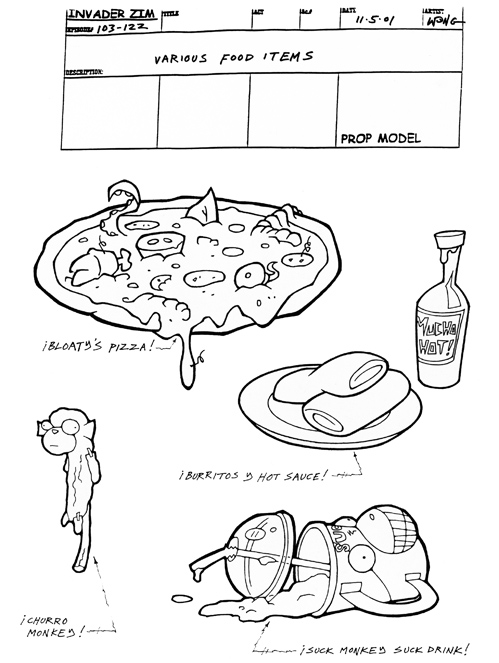 INVADER ZIM TITLE ACT DATE ARTIST:
EPISODE# 103-122 11.5.01
VARIOUS FOOD ITEMS
DESCRIPTION:
PROP MODEL
¡BLOATY'S PIZZA!
MUCHO
HOT!
¡BURRITOS Y HOT SAUCE!
¡CHURRO
MONKEY!
SUCK
¡SUCK MONKEY SUCK DRINK!